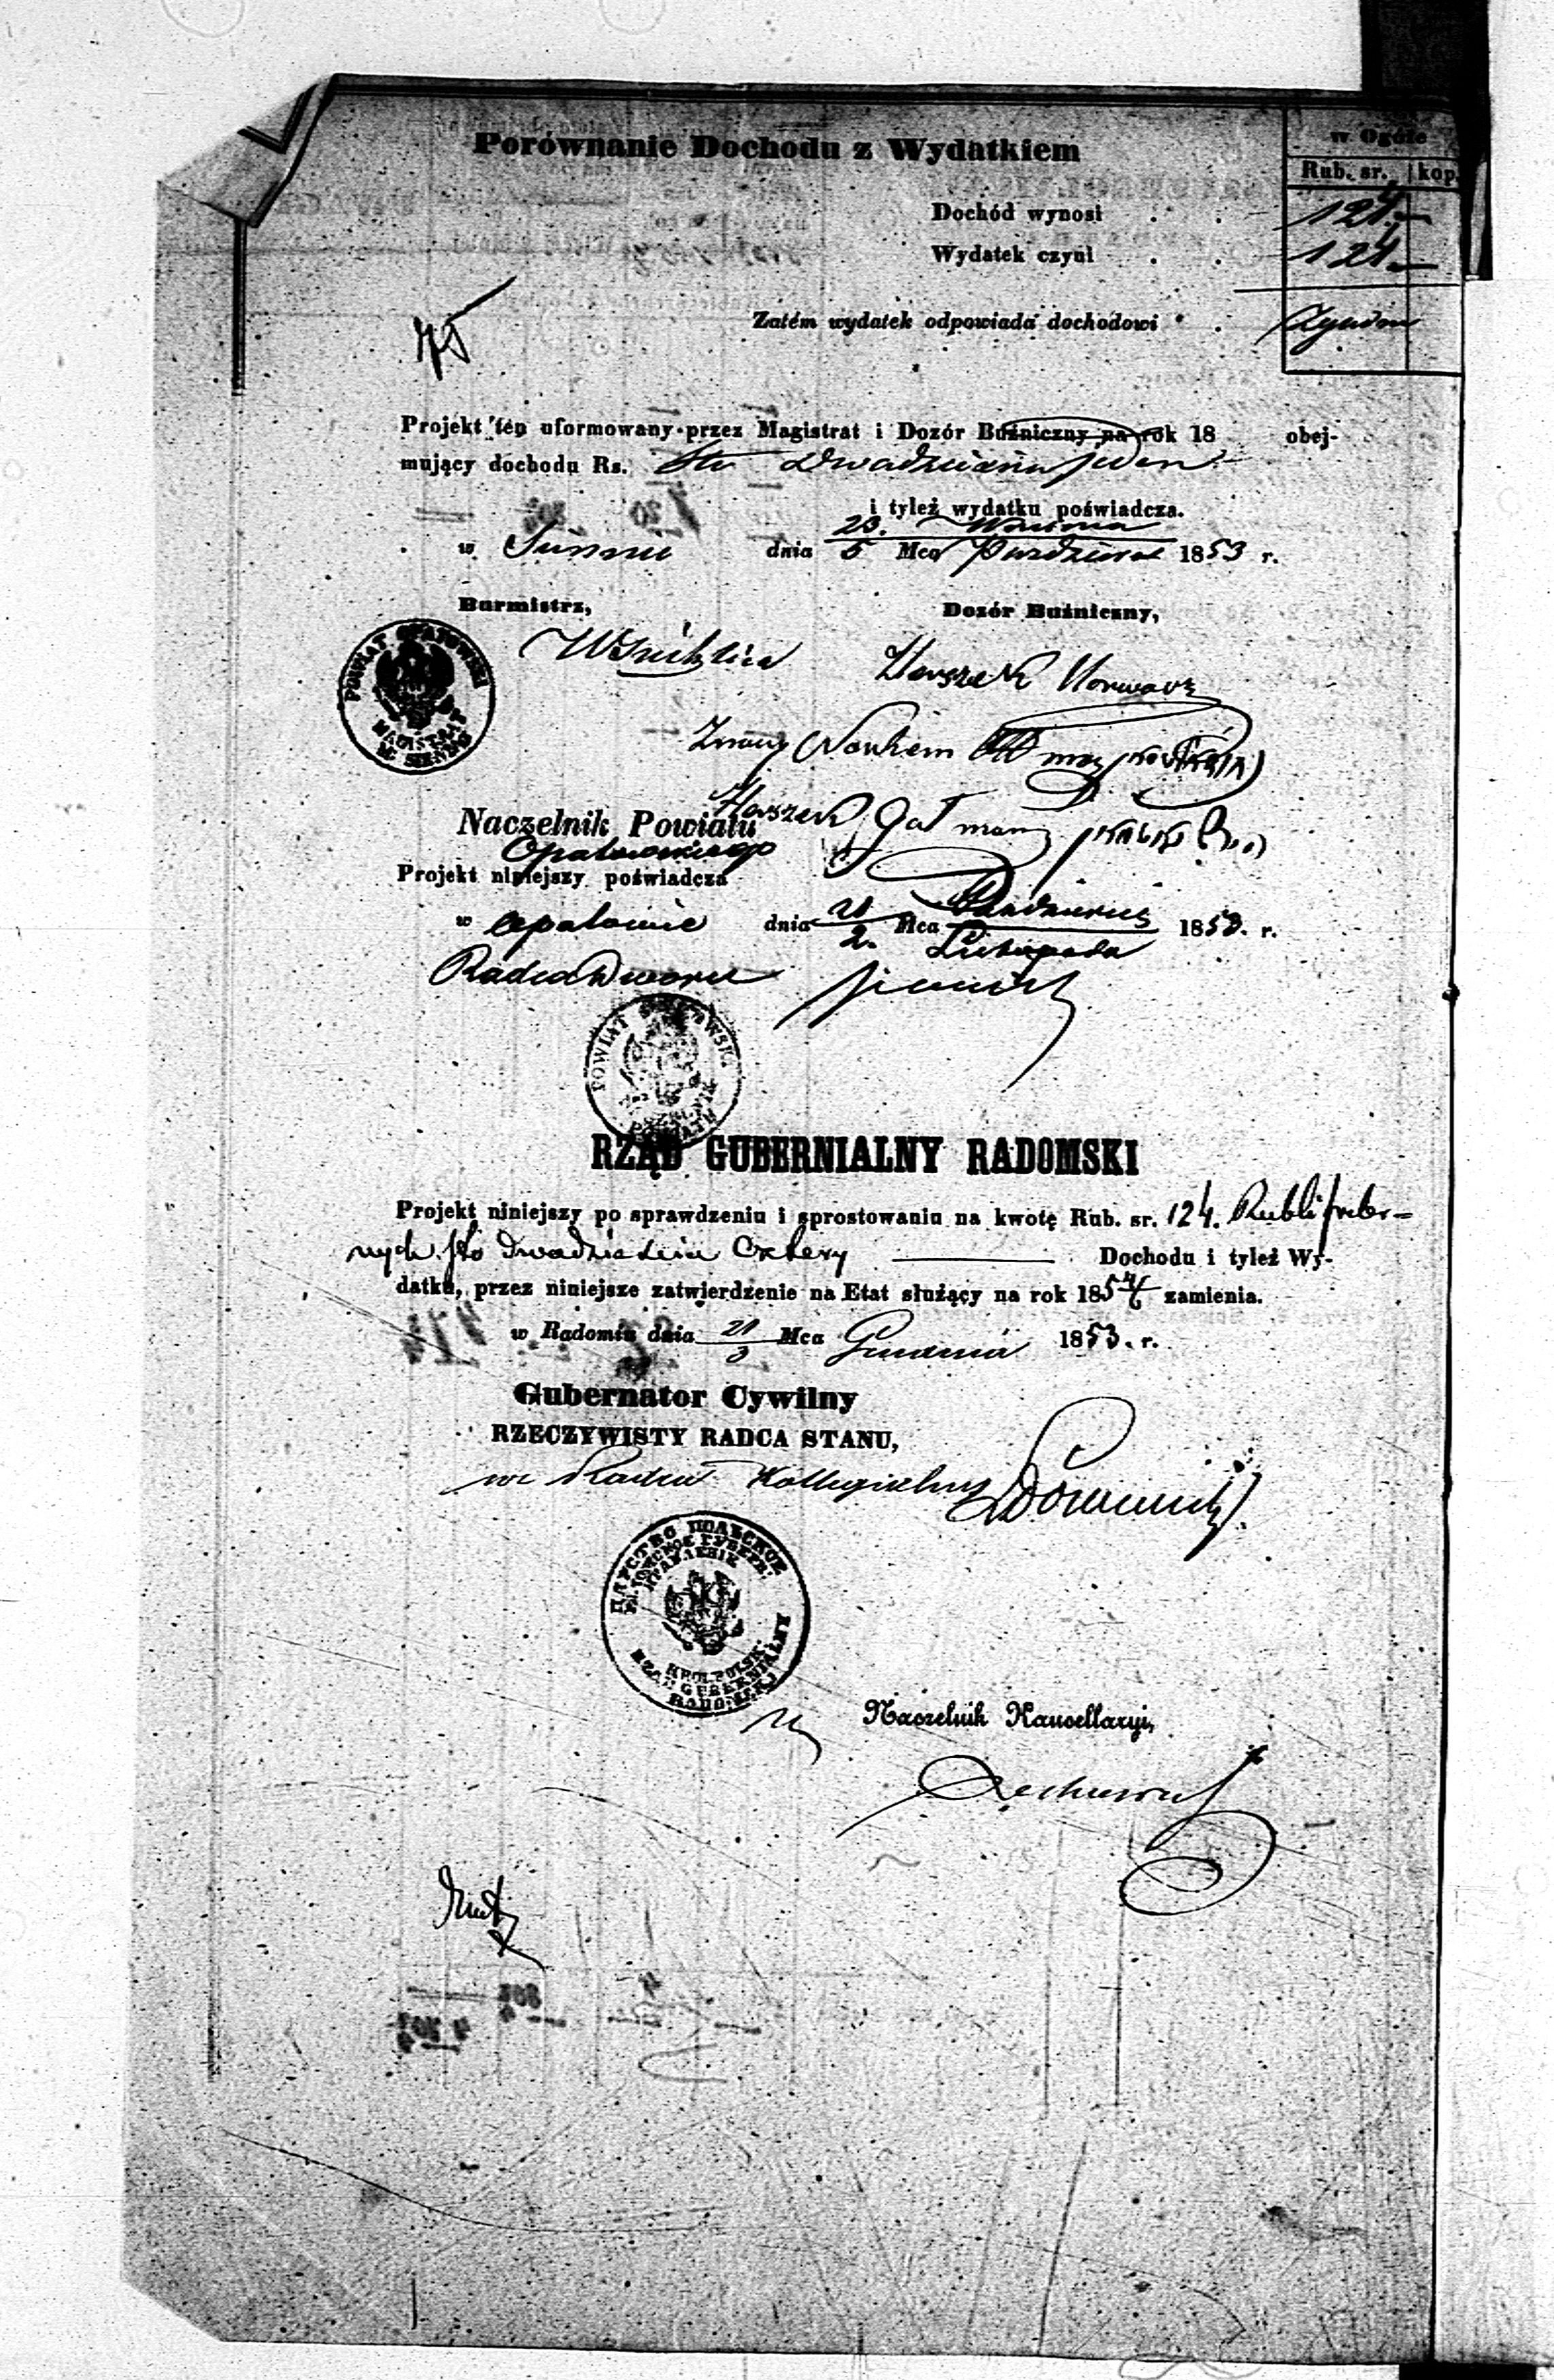 Porównanie Dochodu z Wydatkiem
w Ogóle
Rub. sr. kop.
Dochód wynosi . . 124.—
Wydatek czyni . . 124.—
Zatém wydatek odpowiada dochodowi
Projekt ten uformowany przez Magistrat i Dozór Buźniczny na rok 18 obej-
mujący dochodu Rs. Sto Dwadzieścia jeden
i tyleż wydatku poświadcza.
w Siennie dnia 23. Września
5 Mca Października 1853 r.
Burmistrz,
Dozór Buźniczny,
POWIAT OPATOWSKI
MAGISTRAT
W SIENNIE
Herszek
Herszek
Naczelnik Powiatu
Opatowskiego
Projekt niniejszy poświadcza
w Opatowie dnia 21 Mca Października
2. Listopada 1853. r.
Radca Dworu
POWIAT OPATOWSKI
RZĄD GUBERNIALNY RADOMSKI
Projekt niniejszy po sprawdzeniu i sprostowaniu na kwotę Rub. sr. 124. Rubli srebr-
nych sto dwadzieścia cztery Dochodu i tyleż Wy-
datku, przez niniejsze zatwierdzenie na Etat służący na rok 1854/6 zamienia.
w Radomiu dnia 21
3 Mca Grudnia 1853. r.
Gubernator Cywilny
RZECZYWISTY RADCA STANU,
Radca Kollegialny
ЦАРСТВО ПОЛЬСКОЕ
KRÓL. POLSK.
RZĄD GUBERNIALNY
RADOMSKI
Naczelnik Kancellaryi,